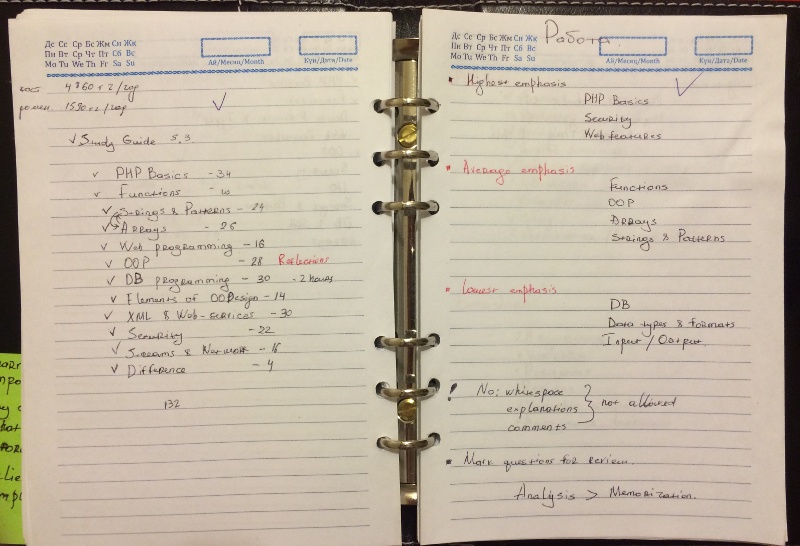 Дс Сс Ср Бс Жм Сн Жк
Пн Вт Ср Чт Пт Сб Вс
Mo Tu We Th Fr Sa Su
Ай/Месяц/Month
Күн/Дата/Date
4860 г/год
1590 г/год
Study Guide 5.3
PHP Basics - 34
Functions - 10
Strings & Patterns - 24
Arrays - 26
Web programming - 16
OOP - 28 Reflections
DB programming - 30 - 2 hours
Elements of OODesign - 14
XML & Web-services - 30
Security - 22
Streams & Network - 16
Difference - 4
132
Работа
Дс Сс Ср Бс Жм Сн Жк
Пн Вт Ср Чт Пт Сб Вс
Mo Tu We Th Fr Sa Su
Ай/Месяц/Month
Күн/Дата/Date
Highest emphasis
PHP Basics
Security
Web features
Average emphasis
Functions
OOP
Arrays
Strings & Patterns
Lowest emphasis
DB
Data types & formats
Input / Output
! No: whitespace
explanations } not allowed
comments
Mark questions for review.
Analysis > Memorization.